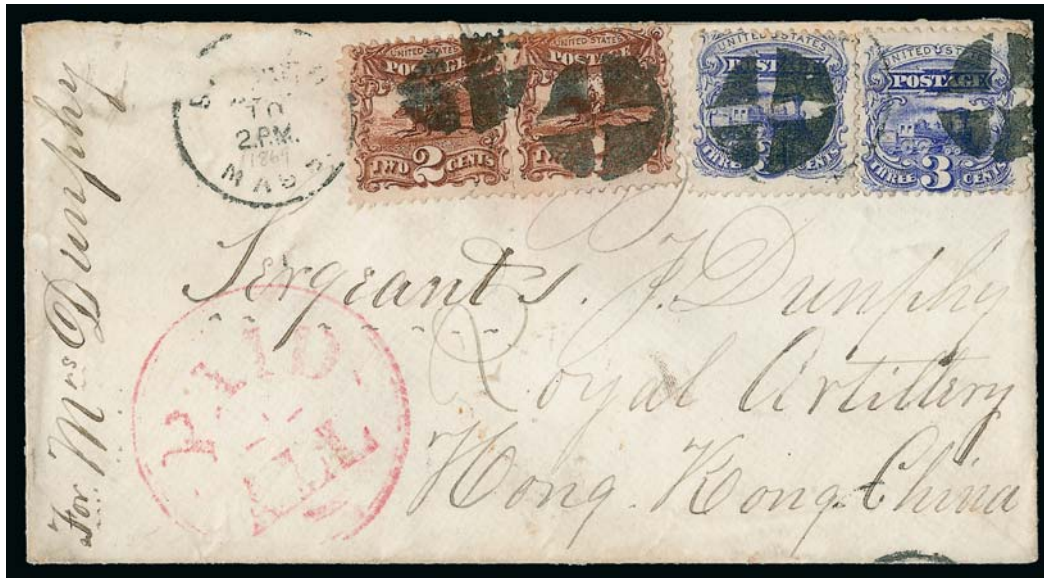 For Mrs Dunphy
TO
2 P.M.
1869
MASS
UNITED STATES
POSTAGE
TWO 2 CENTS
UNITED STATES
POSTAGE
TWO CENTS
UNITED STATES
POSTAGE
THREE CENTS
UNITED STATES
POSTAGE
THREE 3 CENTS
Sergeant S. J. Dunphy
Royal Artillery
Hong Kong China
PAID
ALL